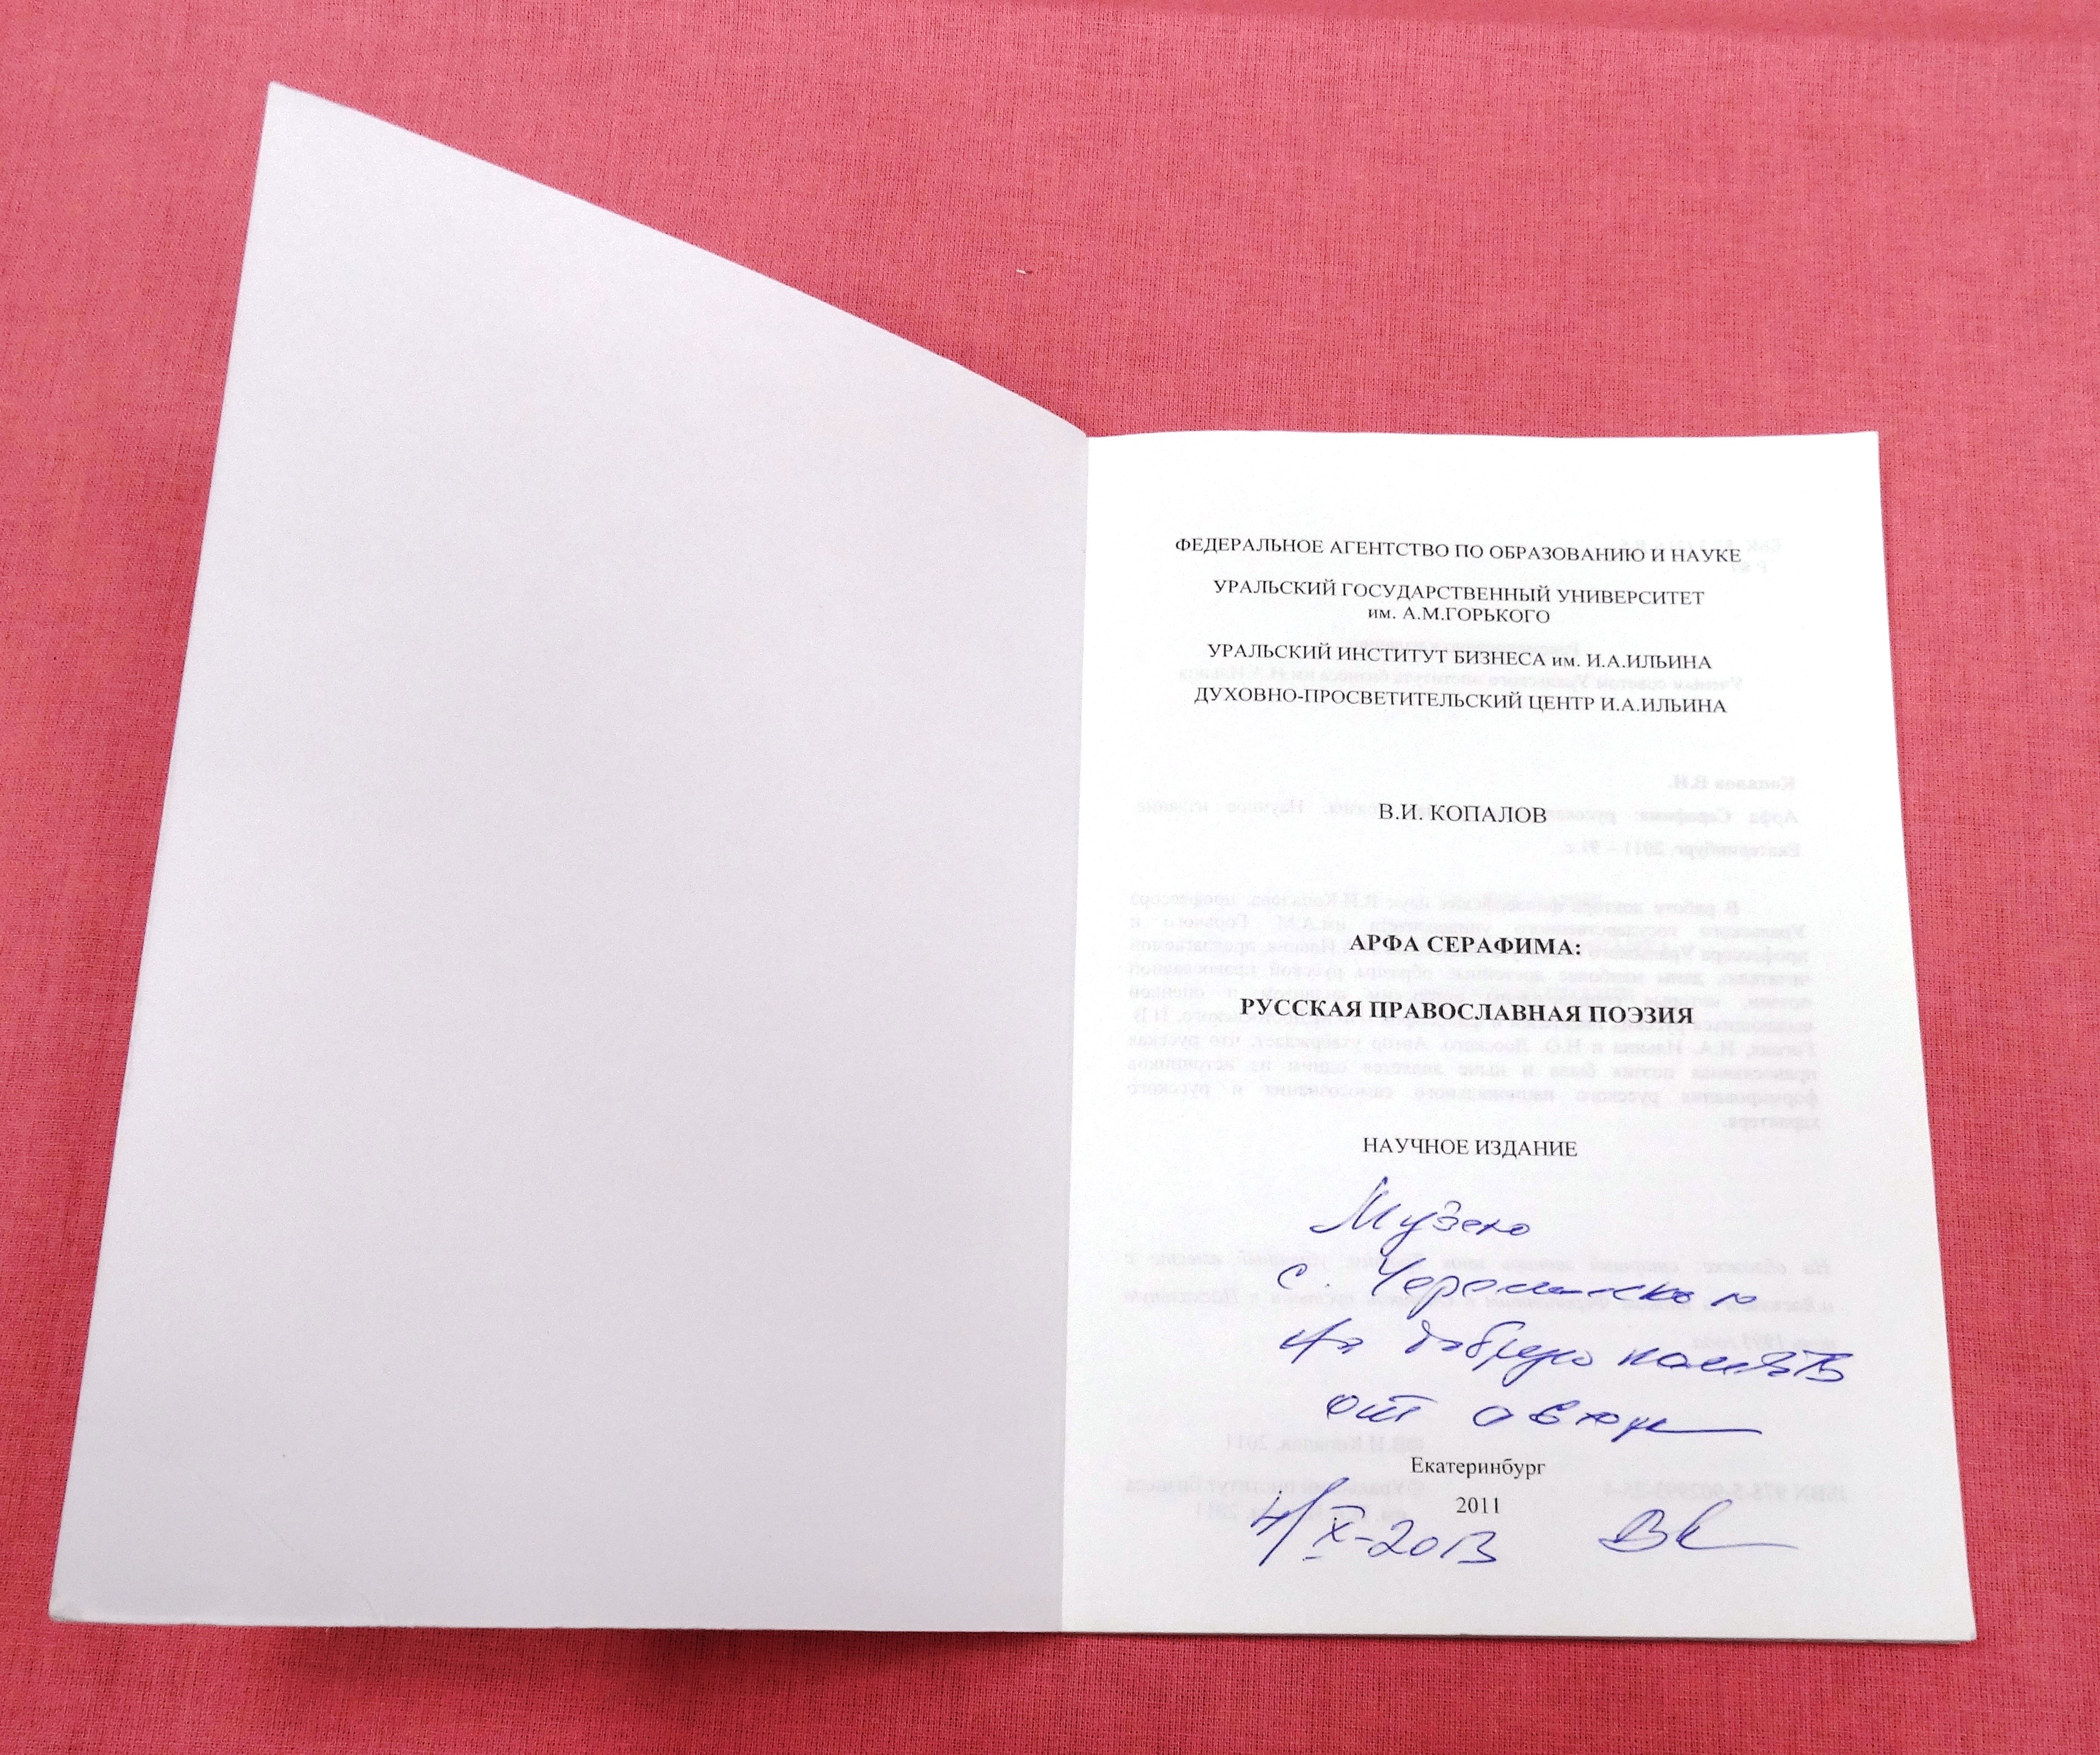 ФЕДЕРАЛЬНОЕ АГЕНТСТВО ПО ОБРАЗОВАНИЮ И НАУКЕ
УРАЛЬСКИЙ ГОСУДАРСТВЕННЫЙ УНИВЕРСИТЕТ
им. А.М.ГОРЬКОГО
УРАЛЬСКИЙ ИНСТИТУТ БИЗНЕСА им. И.А.ИЛЬИНА
ДУХОВНО-ПРОСВЕТИТЕЛЬСКИЙ ЦЕНТР И.А.ИЛЬИНА
В.И. КОПАЛОВ
АРФА СЕРАФИМА:
РУССКАЯ ПРАВОСЛАВНАЯ ПОЭЗИЯ
НАУЧНОЕ ИЗДАНИЕ
Музею
с.
на добрую память
от автора
Екатеринбург
2011
4/X-2013 ВК